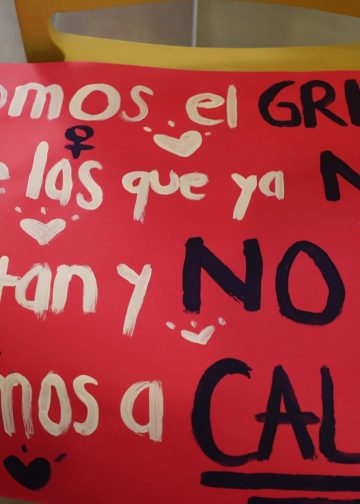 omos el GRI
e las que ya N
tan y NO
mos a CAL